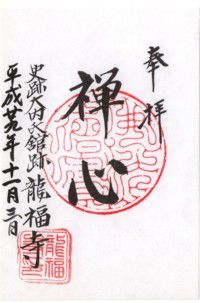 奉拝
禅心
史跡大内氏館跡 龍福寺
平成廿九年十一月三日
龍福